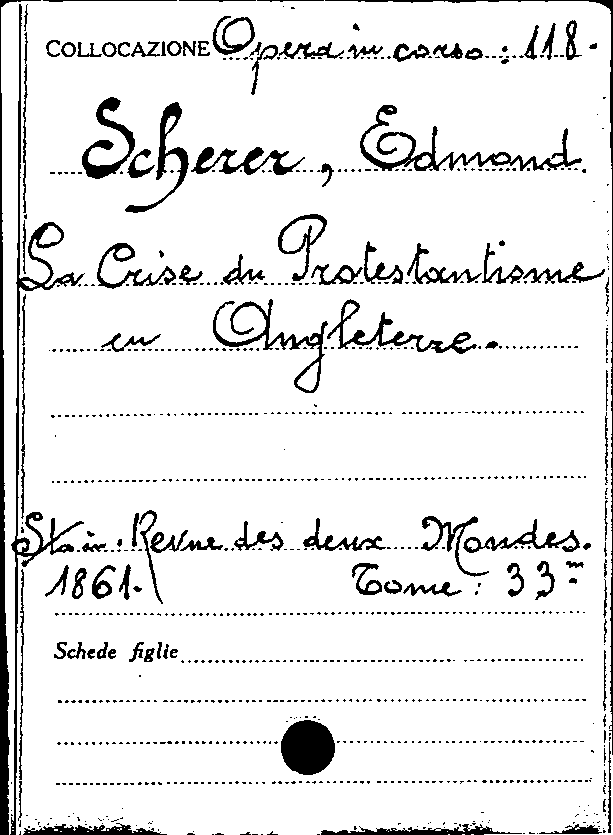 COLLOCAZIONE Opera in corso : 118.
Scherer, Edmond.
La Crise du Protestantisme
en Angleterre.
Sta in. Revue des deux Mondes.
1861. Tome : 33m
Schede figlie